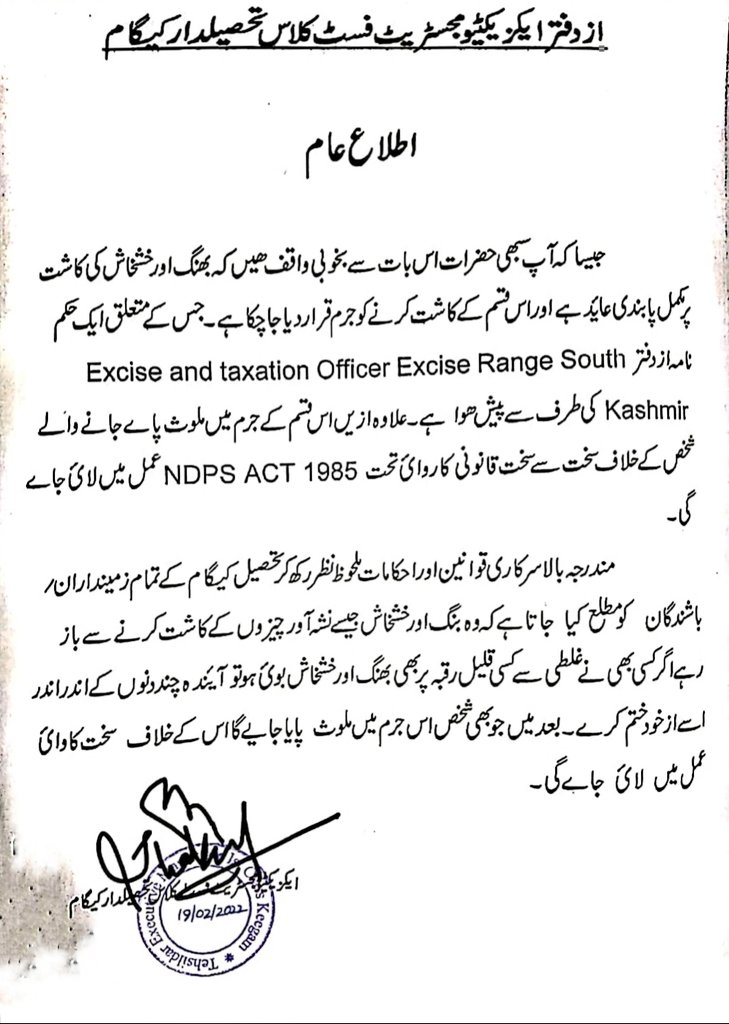 از دفتر ایگزیکٹیو مجسٹریٹ فسٹ کلاس تحصیلدار کیگام
اطلاع عام
جیسا کہ آپ سبھی حضرات اس بات سے بخوبی واقف ھیں کہ بھنگ اور خشخاش کی کاشت
پر مکمل پابندی عاید ہے اور اس قسم کے کاشت کرنے کو جرم قرار دیا جا چکا ہے۔ جس کے متعلق ایک حکم
نامہ از دفتر Excise and taxation Officer Excise Range South
Kashmir کی طرف سے پیش ھوا ہے۔ علاوہ ازیں اس قسم کے جرم میں ملوث پاے جانے والے
شخص کے خلاف سخت سے سخت قانونی کاروائ تحت NDPS ACT 1985 عمل میں لائ جاے
گی۔
مندرجہ بالا سرکاری قوانین اور احکامات ملحوظ نظر رکھ کر تحصیل کیگام کے تمام زمینداران/
باشندگان کو مطلع کیا جاتا ہے کہ وہ بنگ اور خشخاش جیسے نشہ آور چیزوں کے کاشت کرنے سے باز
رہے اگر کسی بھی نے غلطی سے کسی قلیل رقبہ پر بھی بھنگ اور خشخاش بوئ ہو تو آیندہ چند دنوں کے اندر اندر
اسے از خود ختم کرے۔ بعد میں جو بھی شخص اس جرم میں ملوث پایا جایے گا اس کے خلاف سخت کاوائ
عمل میں لائ جاے گی۔
ایگزیکٹیو مجسٹریٹ فسٹ کلاس تحصیلدار کیگام
19/02/2022
Tehsildar Executive 1st Class Keegam